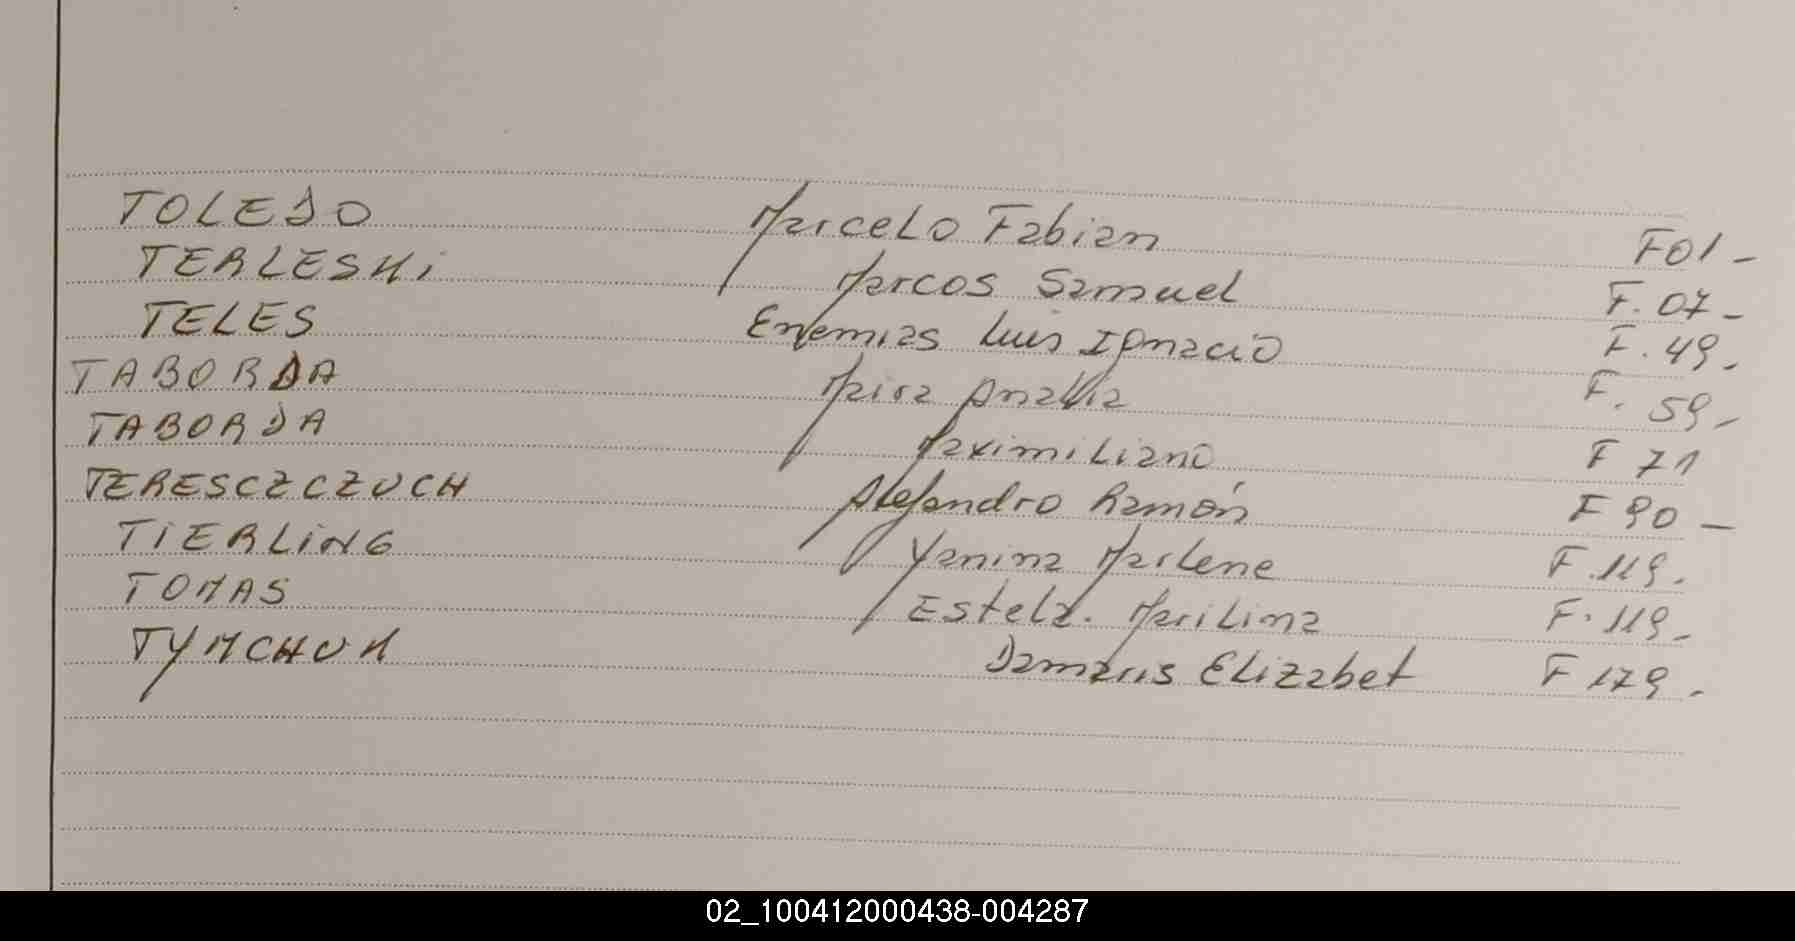 TOLEDO Marcelo Fabian F01-
TERLESKi Marcos Samuel F.07-
TELES Enemias Luis Ignacio F.49-
TABORDA Maira Analia F.59-
TABORDA Maximiliano F 71
TERESCZCZUCH Alejandro Ramón F 90-
TiERLiNG Yanina Marlene F.119.
TOMAS Estela. Marilina F.119-
TYMCHUK Damaris Elizabet F 179.
02_100412000438-004287